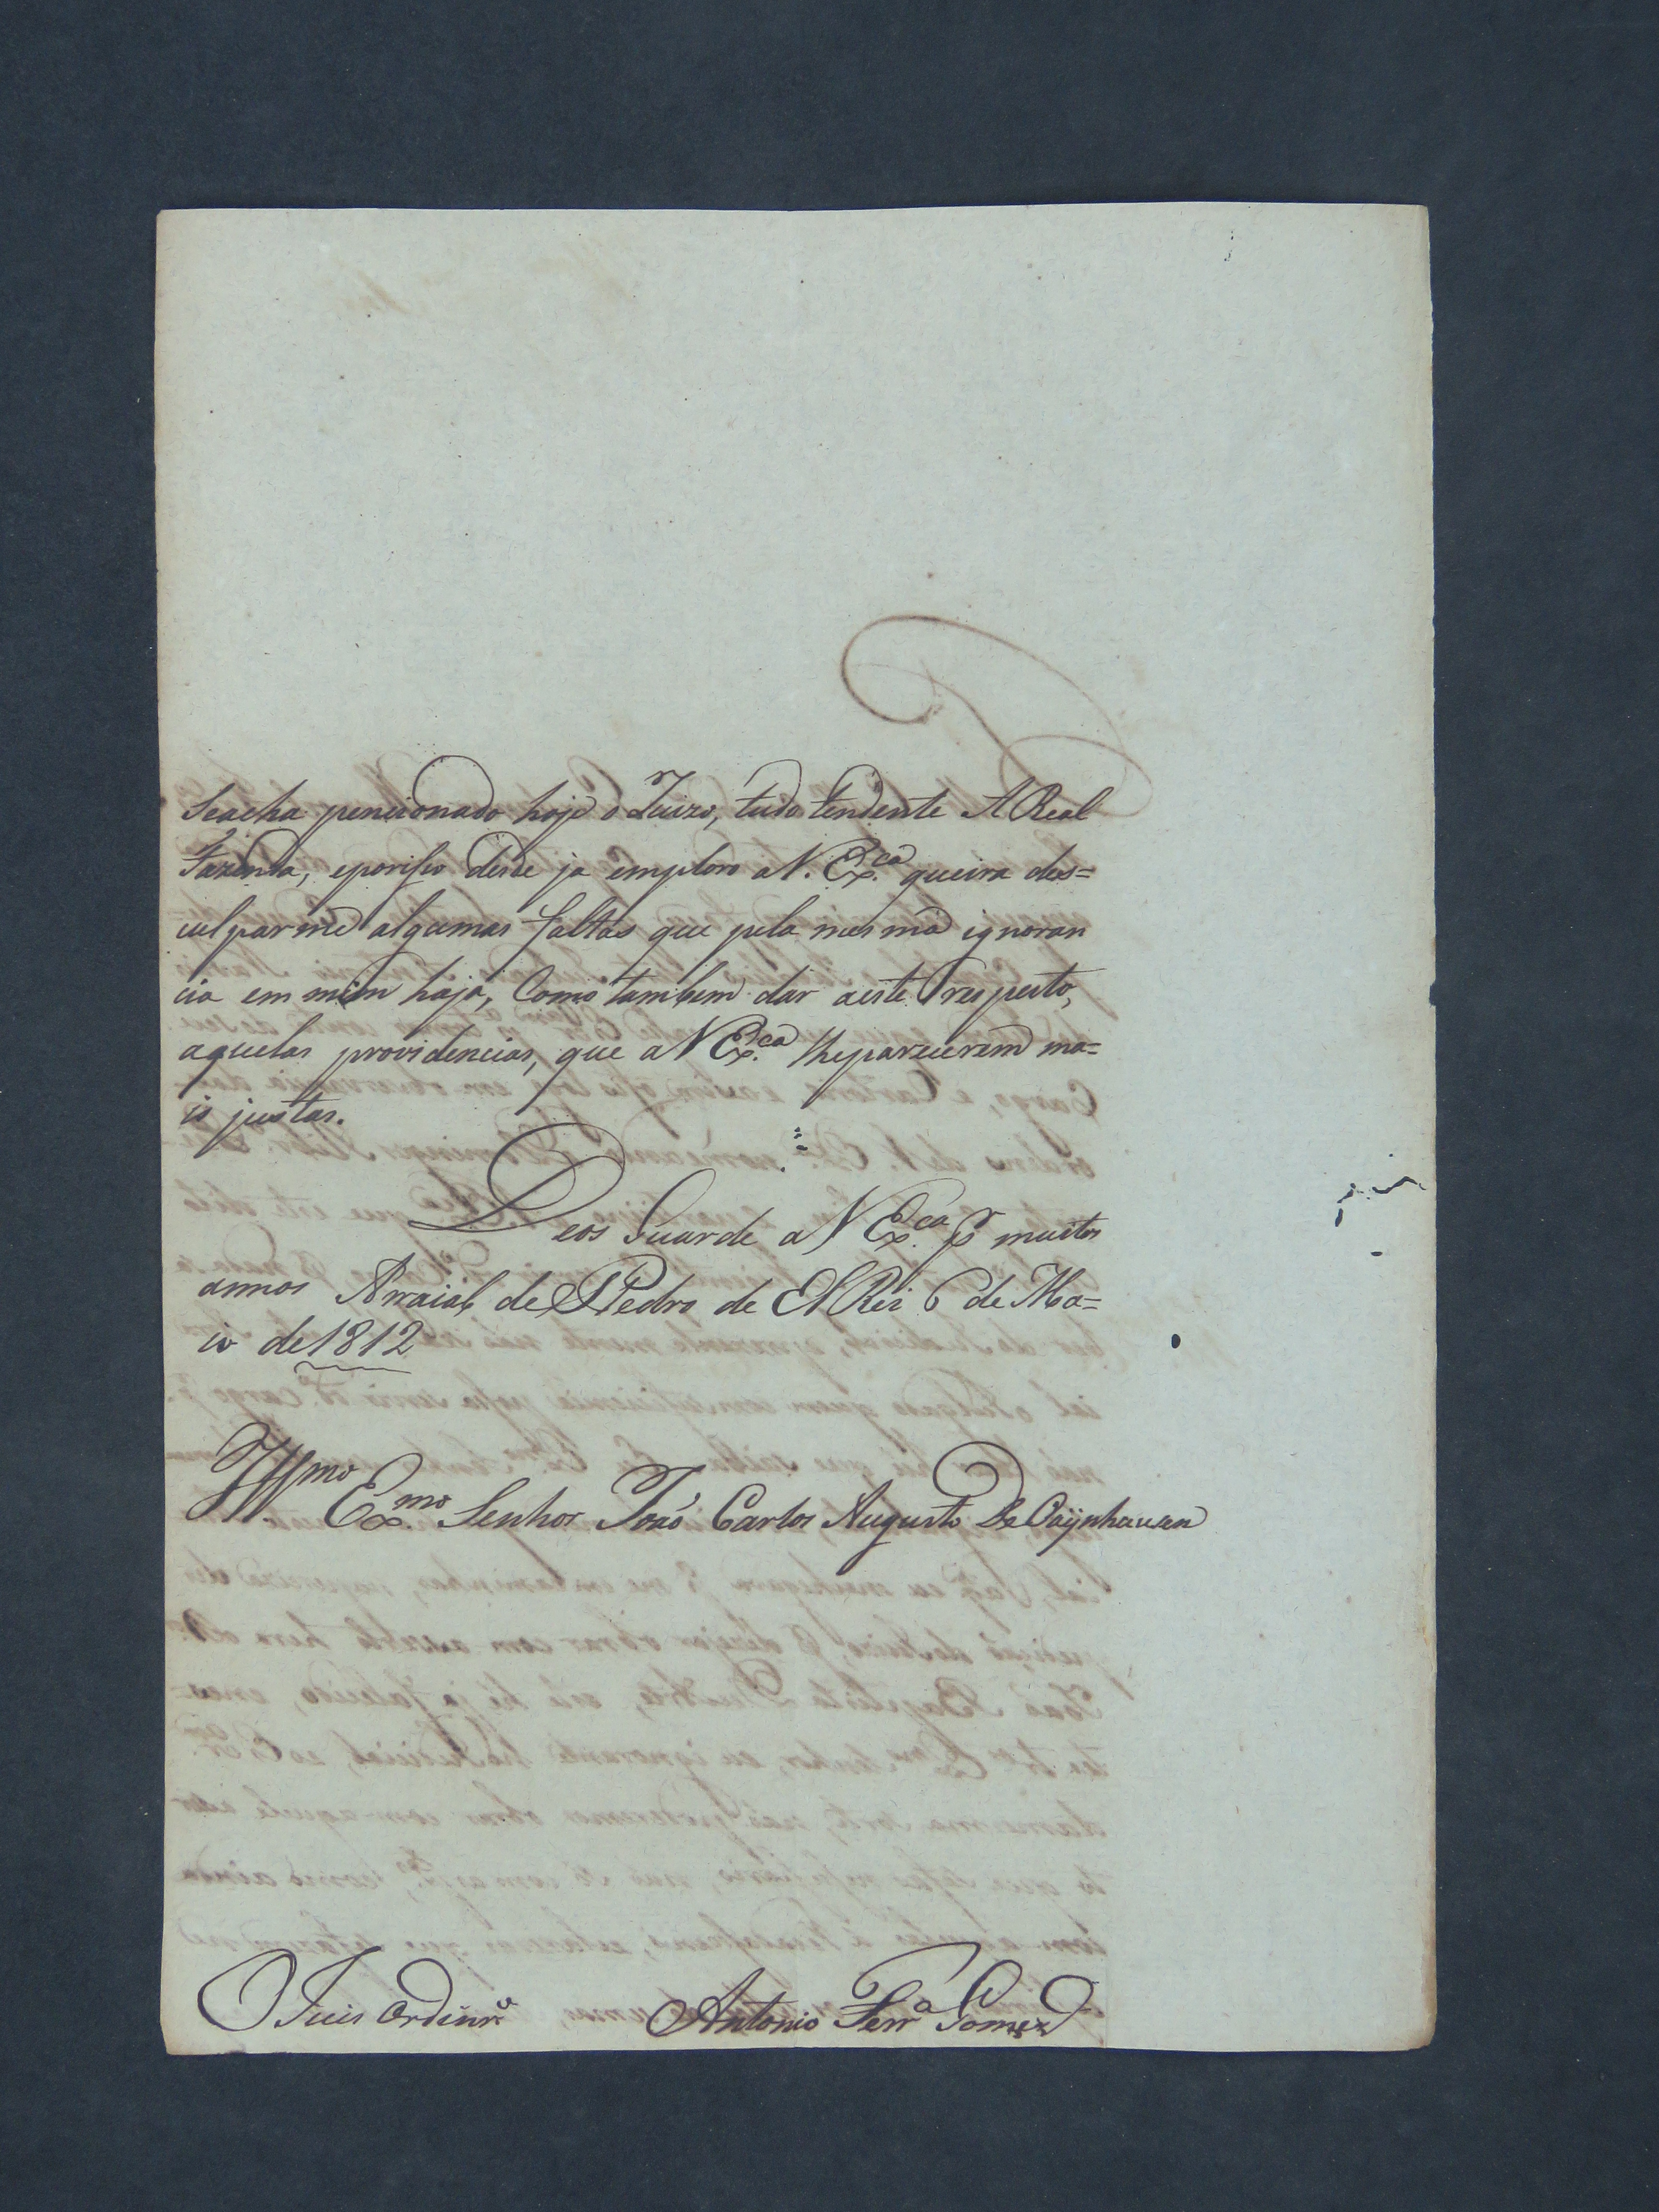 seacha pencionado hoje o Juizo, tudo tendente A Real
Fazenda, eporisso desde ja emploro aV. Exca. queira des=
culparme algumas faltas que pela mesma ignoran
cia em mim haja, Como tambem dar aeste respeito,
aquelas providencias, que aV Exca. lhe parecerem ma=
is justas.
Deos Guarde aV Exca. pr muitos
annos Arraial de S Pedro de El Rei 6 de Ma=
io de 1812
Illmo. Exmo. Senhor João Carlos Augusto De Oÿnhausen
O Juis Ordinro.
Antonio Ferra Gomez